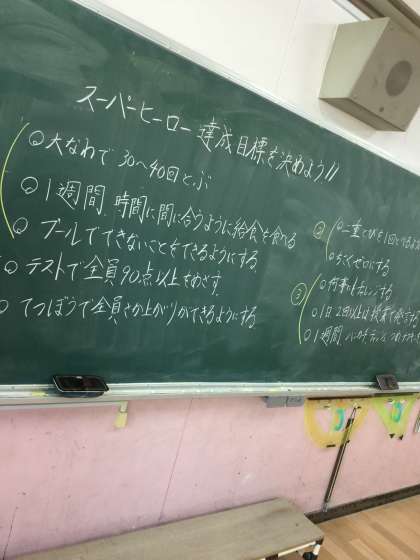 スーパーヒーロー達成目標を決めよう!!
○大なわで30〜40回とぶ
○1週間、時間に間に合うように給食を食べる
○プールでできないことをできるようにする。
○テストで全員90点以上をめざす。
○てつぼうで全員さか上がりができるようにする。
②
○二重とびを1回
ゼロにする
③
する
○1日2回以上は授業で発言する
○1週間